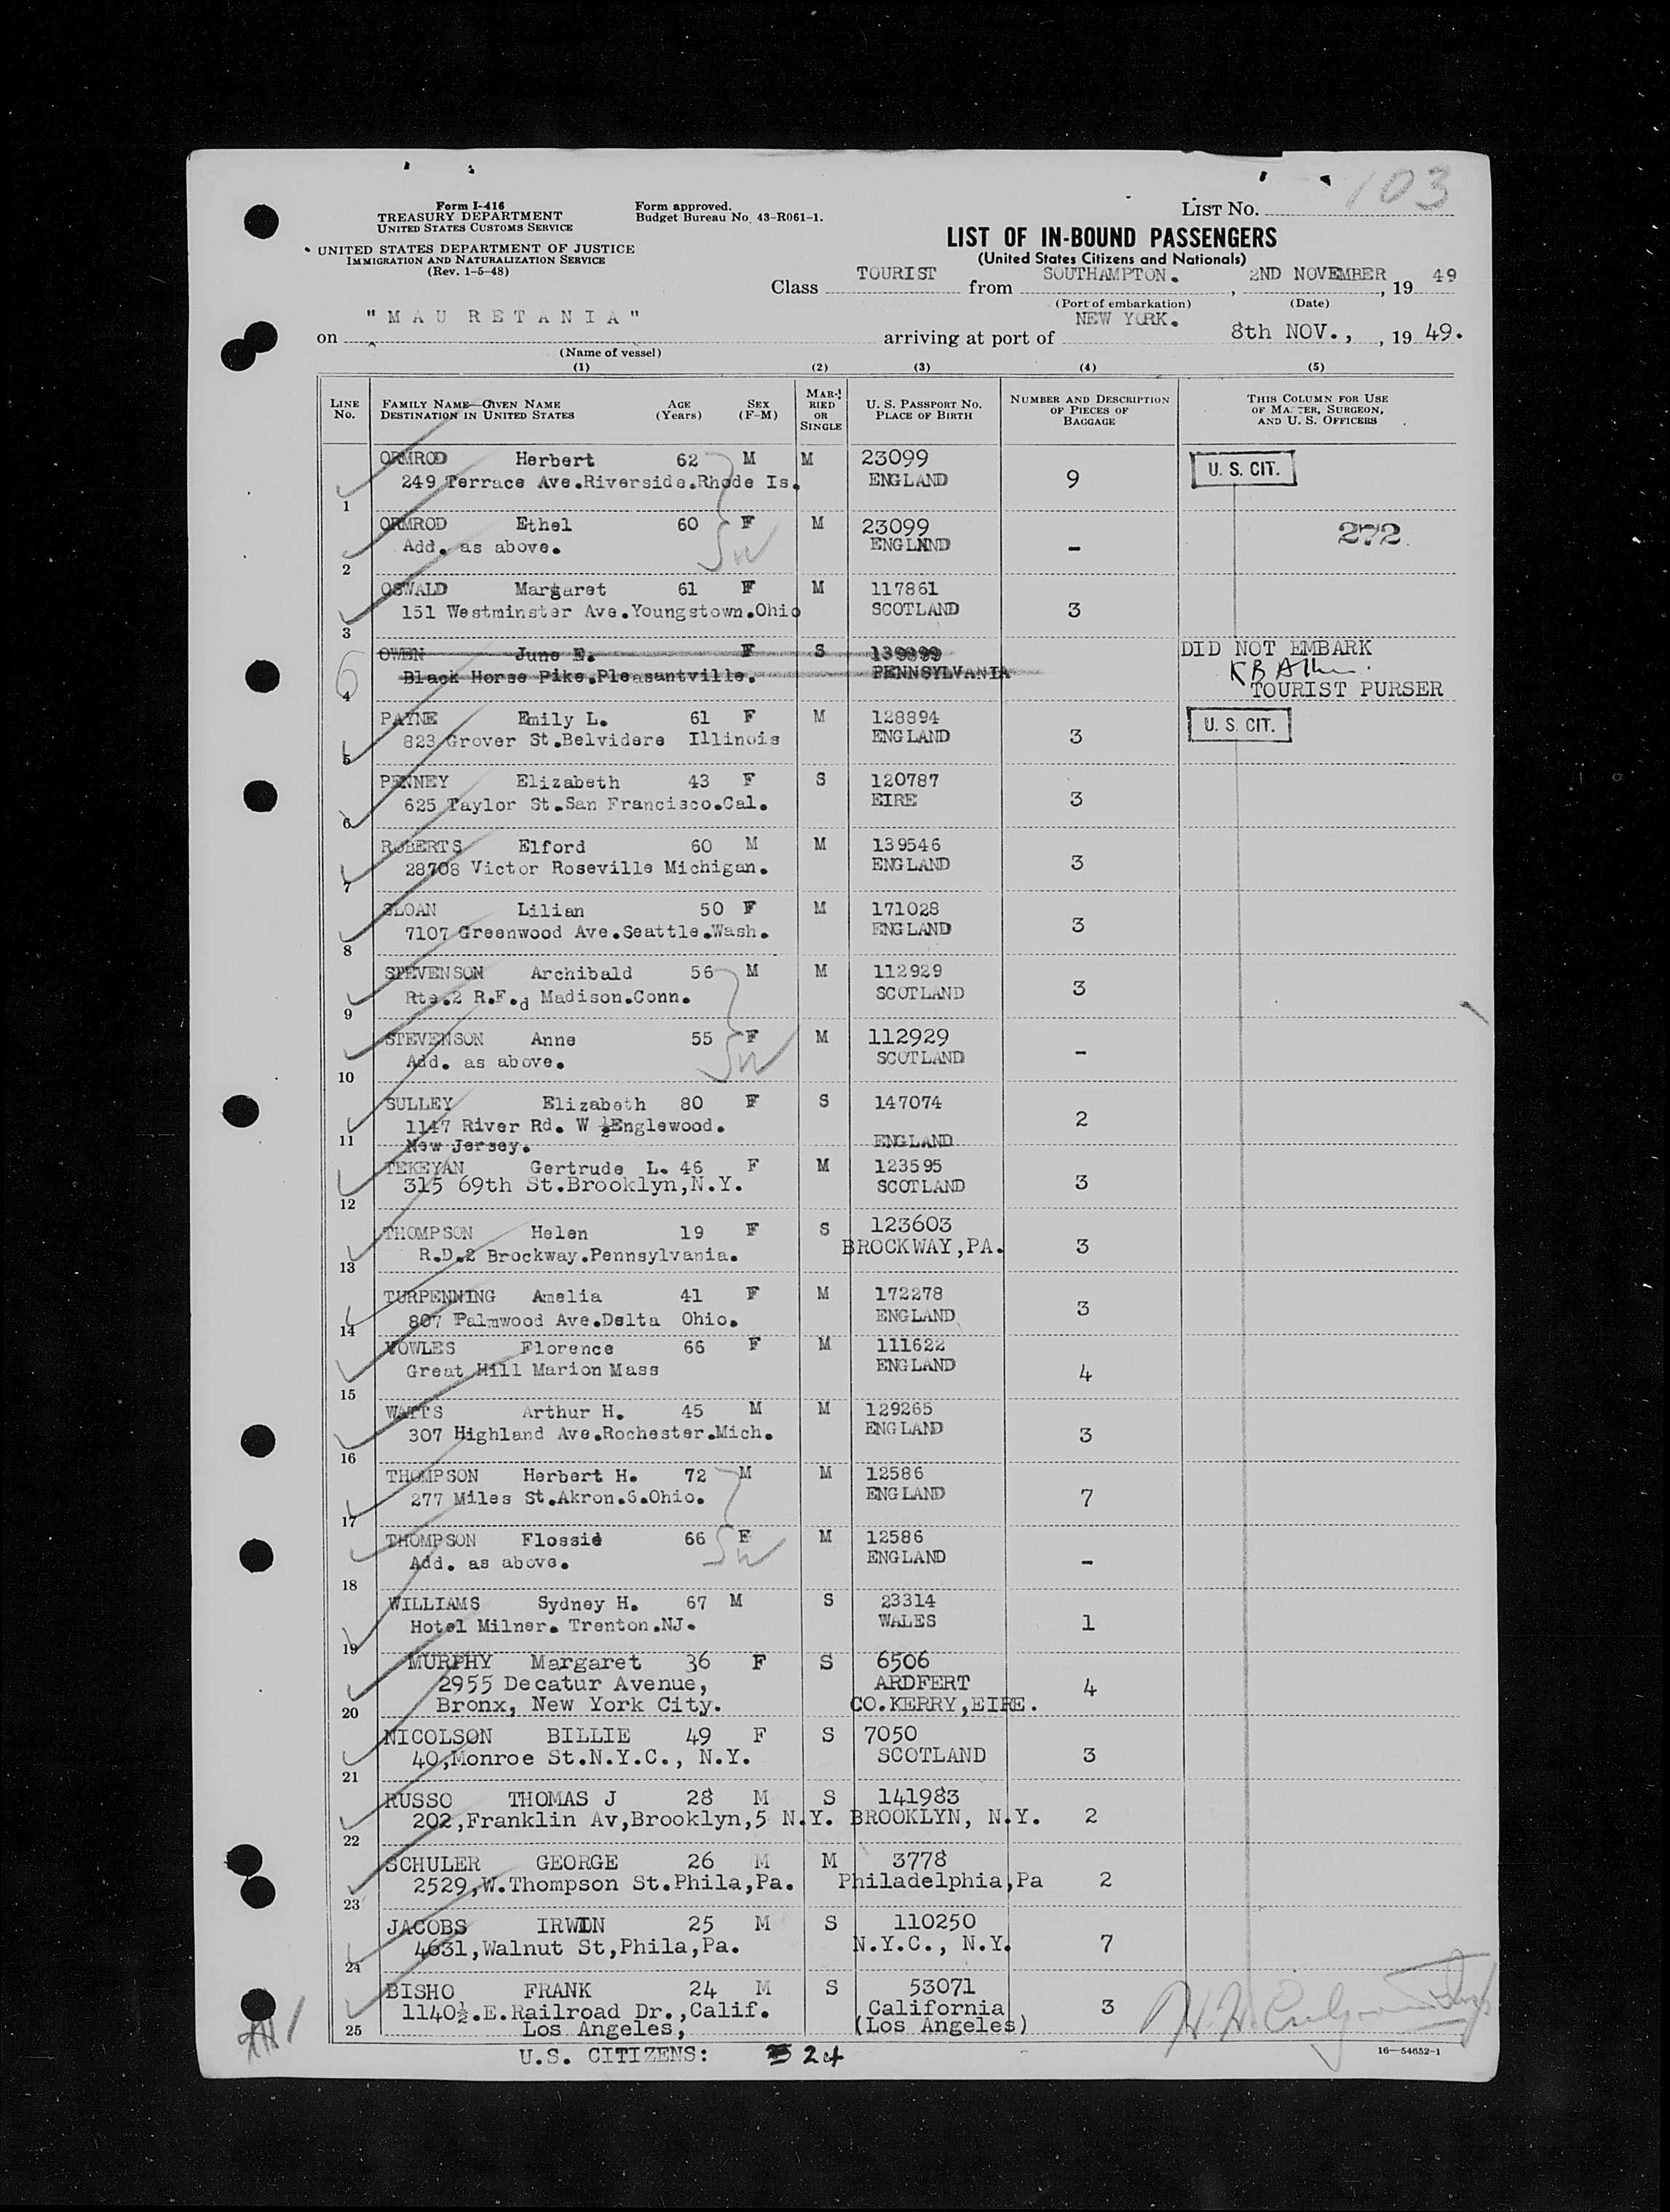 103
Form I-416
TREASURY DEPARTMENT
UNITED STATES CUSTOMS SERVICE
Form approved.
Budget Bureau No. 43-R061-1.
LIST NO.
UNITED STATES DEPARTMENT OF JUSTICE
IMMIGRATION AND NATURALIZATION SERVICE
(Rev. 1-5-48)
LIST OF IN-BOUND PASSENGERS
(United States Citizens and Nationals)
Class TOURIST from SOUTHAMPTON. , 2ND NOVEMBER , 19 49
(Port of embarkation) (Date)
on "MAURETANIA" arriving at port of NEW YORK. 8th NOV., , 19 49.
(Name of vessel)
(1) (2) (3) (4) (5)
LINE NO. FAMILY NAME—GIVEN NAME DESTINATION IN UNITED STATES AGE (Years) SEX (F-M) MARRIED OR SINGLE U. S. PASSPORT NO. PLACE OF BIRTH NUMBER AND DESCRIPTION OF PIECES OF BAGGAGE THIS COLUMN FOR USE OF MASTER, SURGEON, AND U. S. OFFICERS
ORMROD Herbert 62 M M 23099 U. S. CIT.
249 Terrace Ave.Riverside.Rhode Is. ENGLAND 9
1
ORMROD Ethel 60 F M 23099 272
Add. as above. ENGLAND -
2
OSWALD Margaret 61 F M 117861
151 Westminster Ave.Youngstown.Ohio SCOTLAND 3
3
OWEN June E. F S 139999 DID NOT EMBARK
Black Horse Pike.Pleasantville. PENNSYLVANIA
4 TOURIST PURSER
PAYNE Emily L. 61 F M 128894 U. S. CIT.
823 Grover St.Belvidere Illinois ENGLAND 3
5
PENNEY Elizabeth 43 F S 120787
625 Taylor St.San Francisco.Cal. EIRE 3
6
ROBERTS Elford 60 M M 139546
28708 Victor Roseville Michigan. ENGLAND 3
7
SLOAN Lilian 50 F M 171028
7107 Greenwood Ave.Seattle.Wash. ENGLAND 3
8
STEVENSON Archibald 56 M M 112929
Rte.2 R.F.d Madison.Conn. SCOTLAND 3
9
STEVENSON Anne 55 F M 112929
Add. as above. SCOTLAND -
10
SULLEY Elizabeth 80 F S 147074
1147 River Rd. W ½Englewood. 2
11 New Jersey. ENGLAND
TEKEYAN Gertrude L. 46 F M 123595
315 69th St.Brooklyn,N.Y. SCOTLAND 3
12
THOMPSON Helen 19 F S 123603
R.D.2 Brockway.Pennsylvania. BROCKWAY,PA. 3
13
TURPENNING Amelia 41 F M 172278
807 Palmwood Ave.Delta Ohio. ENGLAND 3
14
VOWLES Florence 66 F M 111622
Great Hill Marion Mass ENGLAND 4
15
WATTS Arthur H. 45 M M 129265
307 Highland Ave.Rochester.Mich. ENGLAND 3
16
THOMPSON Herbert H. 72 M M 12586
277 Miles St.Akron.6.Ohio. ENGLAND 7
17
THOMPSON Flossie 66 F M 12586
Add. as above. ENGLAND -
18
WILLIAMS Sydney H. 67 M S 23314
Hotel Milner. Trenton.NJ. WALES 1
19
MURPHY Margaret 36 F S 6506
2955 Decatur Avenue, ARDFERT 4
20 Bronx, New York City. CO.KERRY,EIRE.
NICOLSON BILLIE 49 F S 7050
40,Monroe St.N.Y.C., N.Y. SCOTLAND 3
21
RUSSO THOMAS J 28 M S 141983
202,Franklin Av,Brooklyn,5 N.Y. BROOKLYN, N.Y. 2
22
SCHULER GEORGE 26 M M 3778
2529,W.Thompson St.Phila,Pa. Philadelphia,Pa 2
23
JACOBS IRWIN 25 M S 110250
4631,Walnut St,Phila,Pa. N.Y.C., N.Y. 7
24
BISHO FRANK 24 M S 53071
1140½.E.Railroad Dr.,Calif. California 3
25 Los Angeles, (Los Angeles)
U.S. CITIZENS: 24
16—54652-1